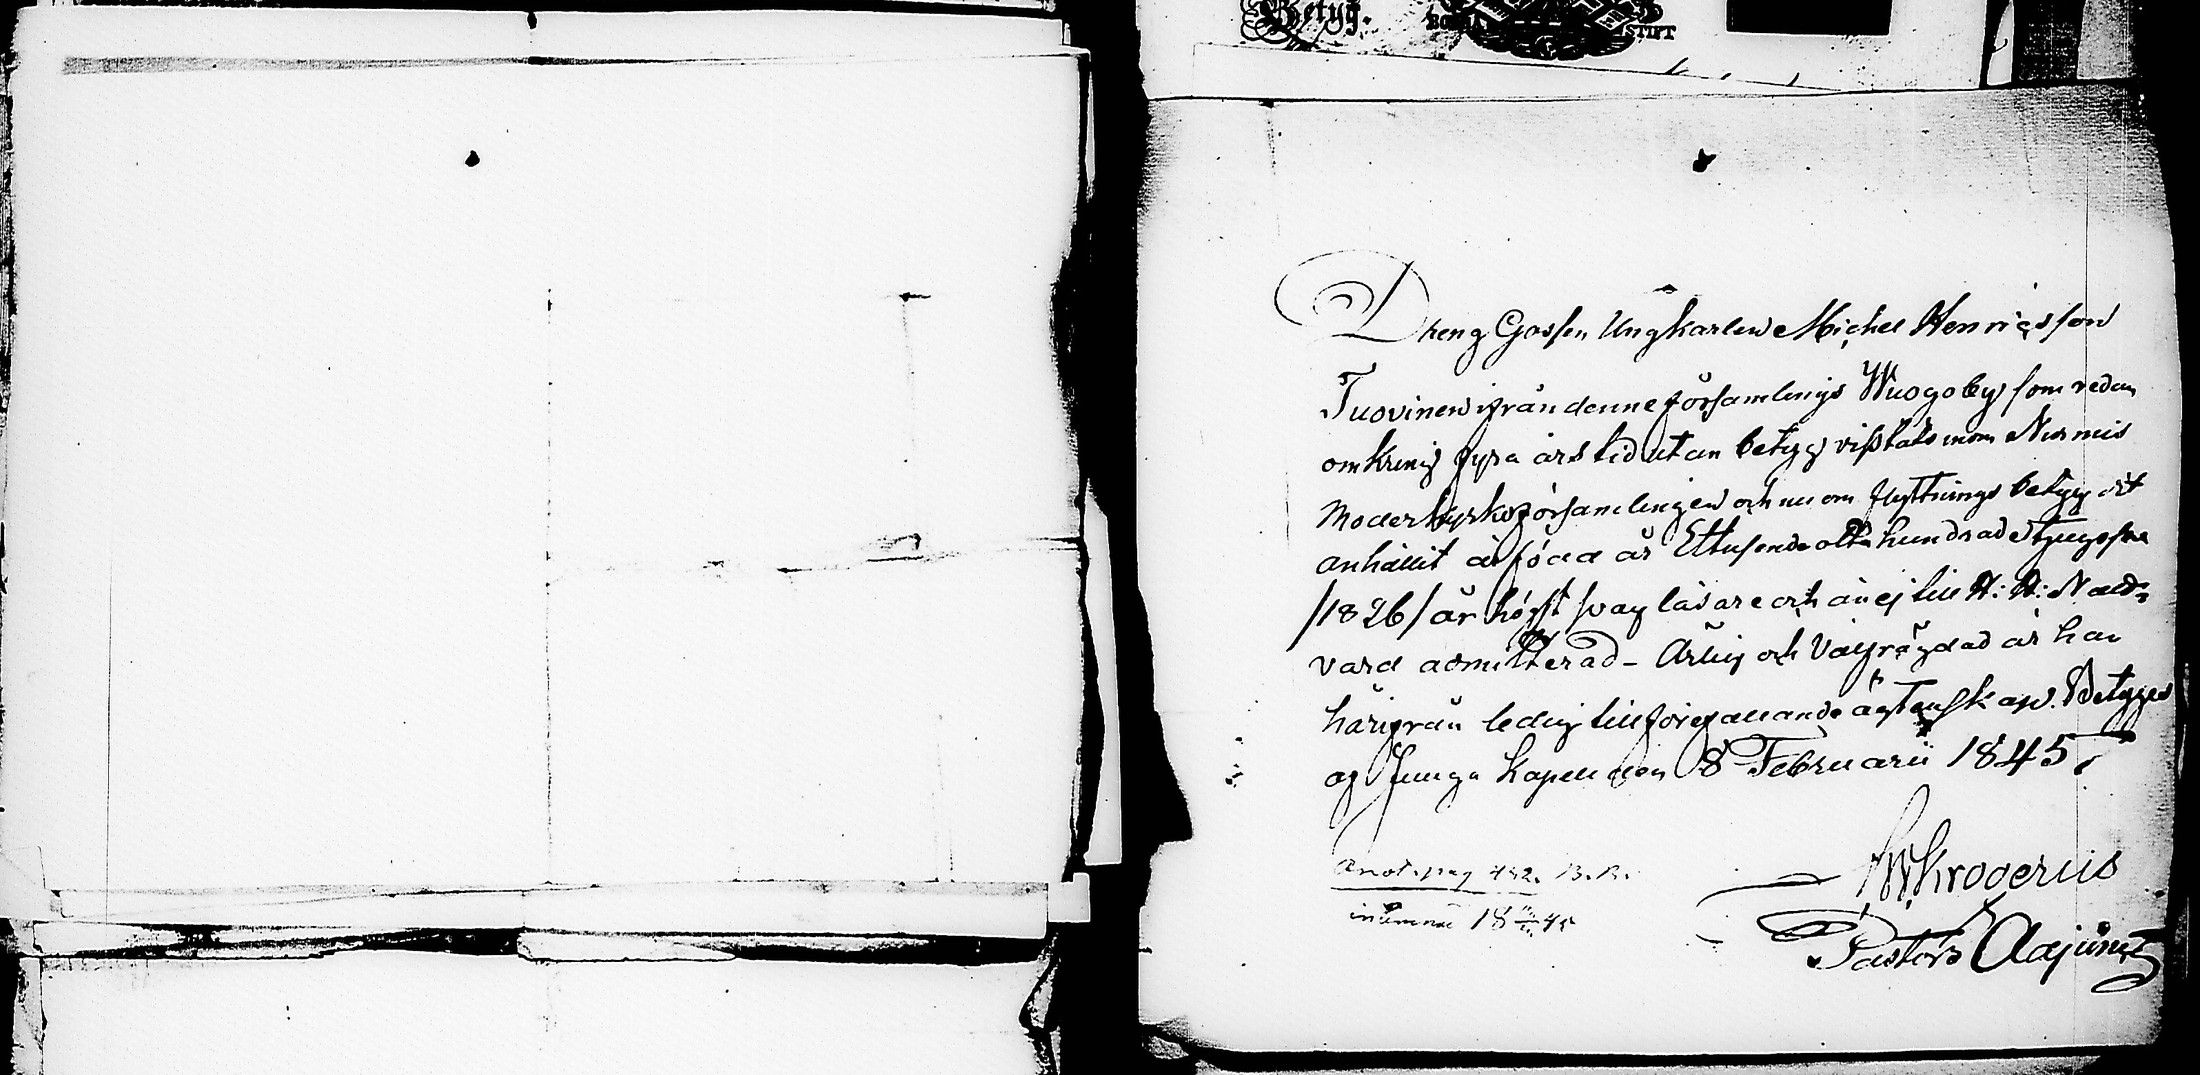 Betyg.
BORGÅ STIFT
Dreng Gossen Ungkarlen Michel Henricsson
Tuovinen ifrån denne församlings Wuogoby som redan
omkring fyra års tid utan betyg vistats inom Nurmis
Moderkyrkoförsamlingen och nu om flyttnings betyg
anhållit är född år Ettusende otta hundrade tjugesex
/1826/ är högst svag läsare och än ej till H: H: Nattv
vard admitterad - Ärlig och Välfrägdad är han
härifrån ledig till förefallande ägtenskap. Betygas
af Juuga Kapell den 8 Februarii 1845,
Anot. pag 432. B. B.
inlemnad 18 45
Krogerius
Pastors Adjunct